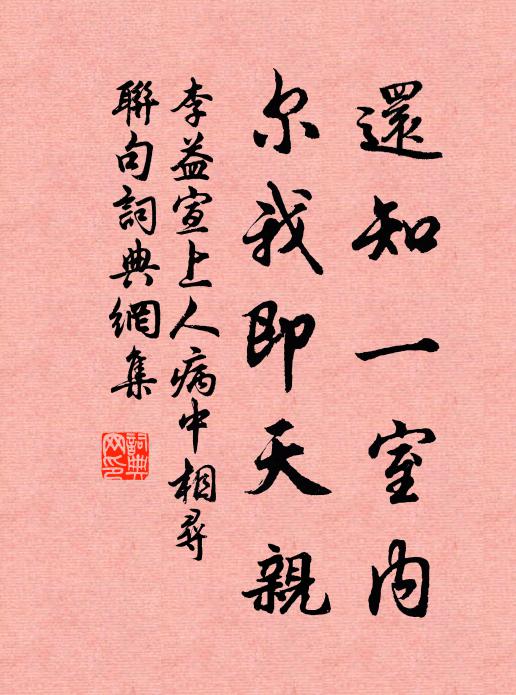 還知一室內
尔我即天親
李益宣上人病中相尋
聯句詞典網集
詞典
网印